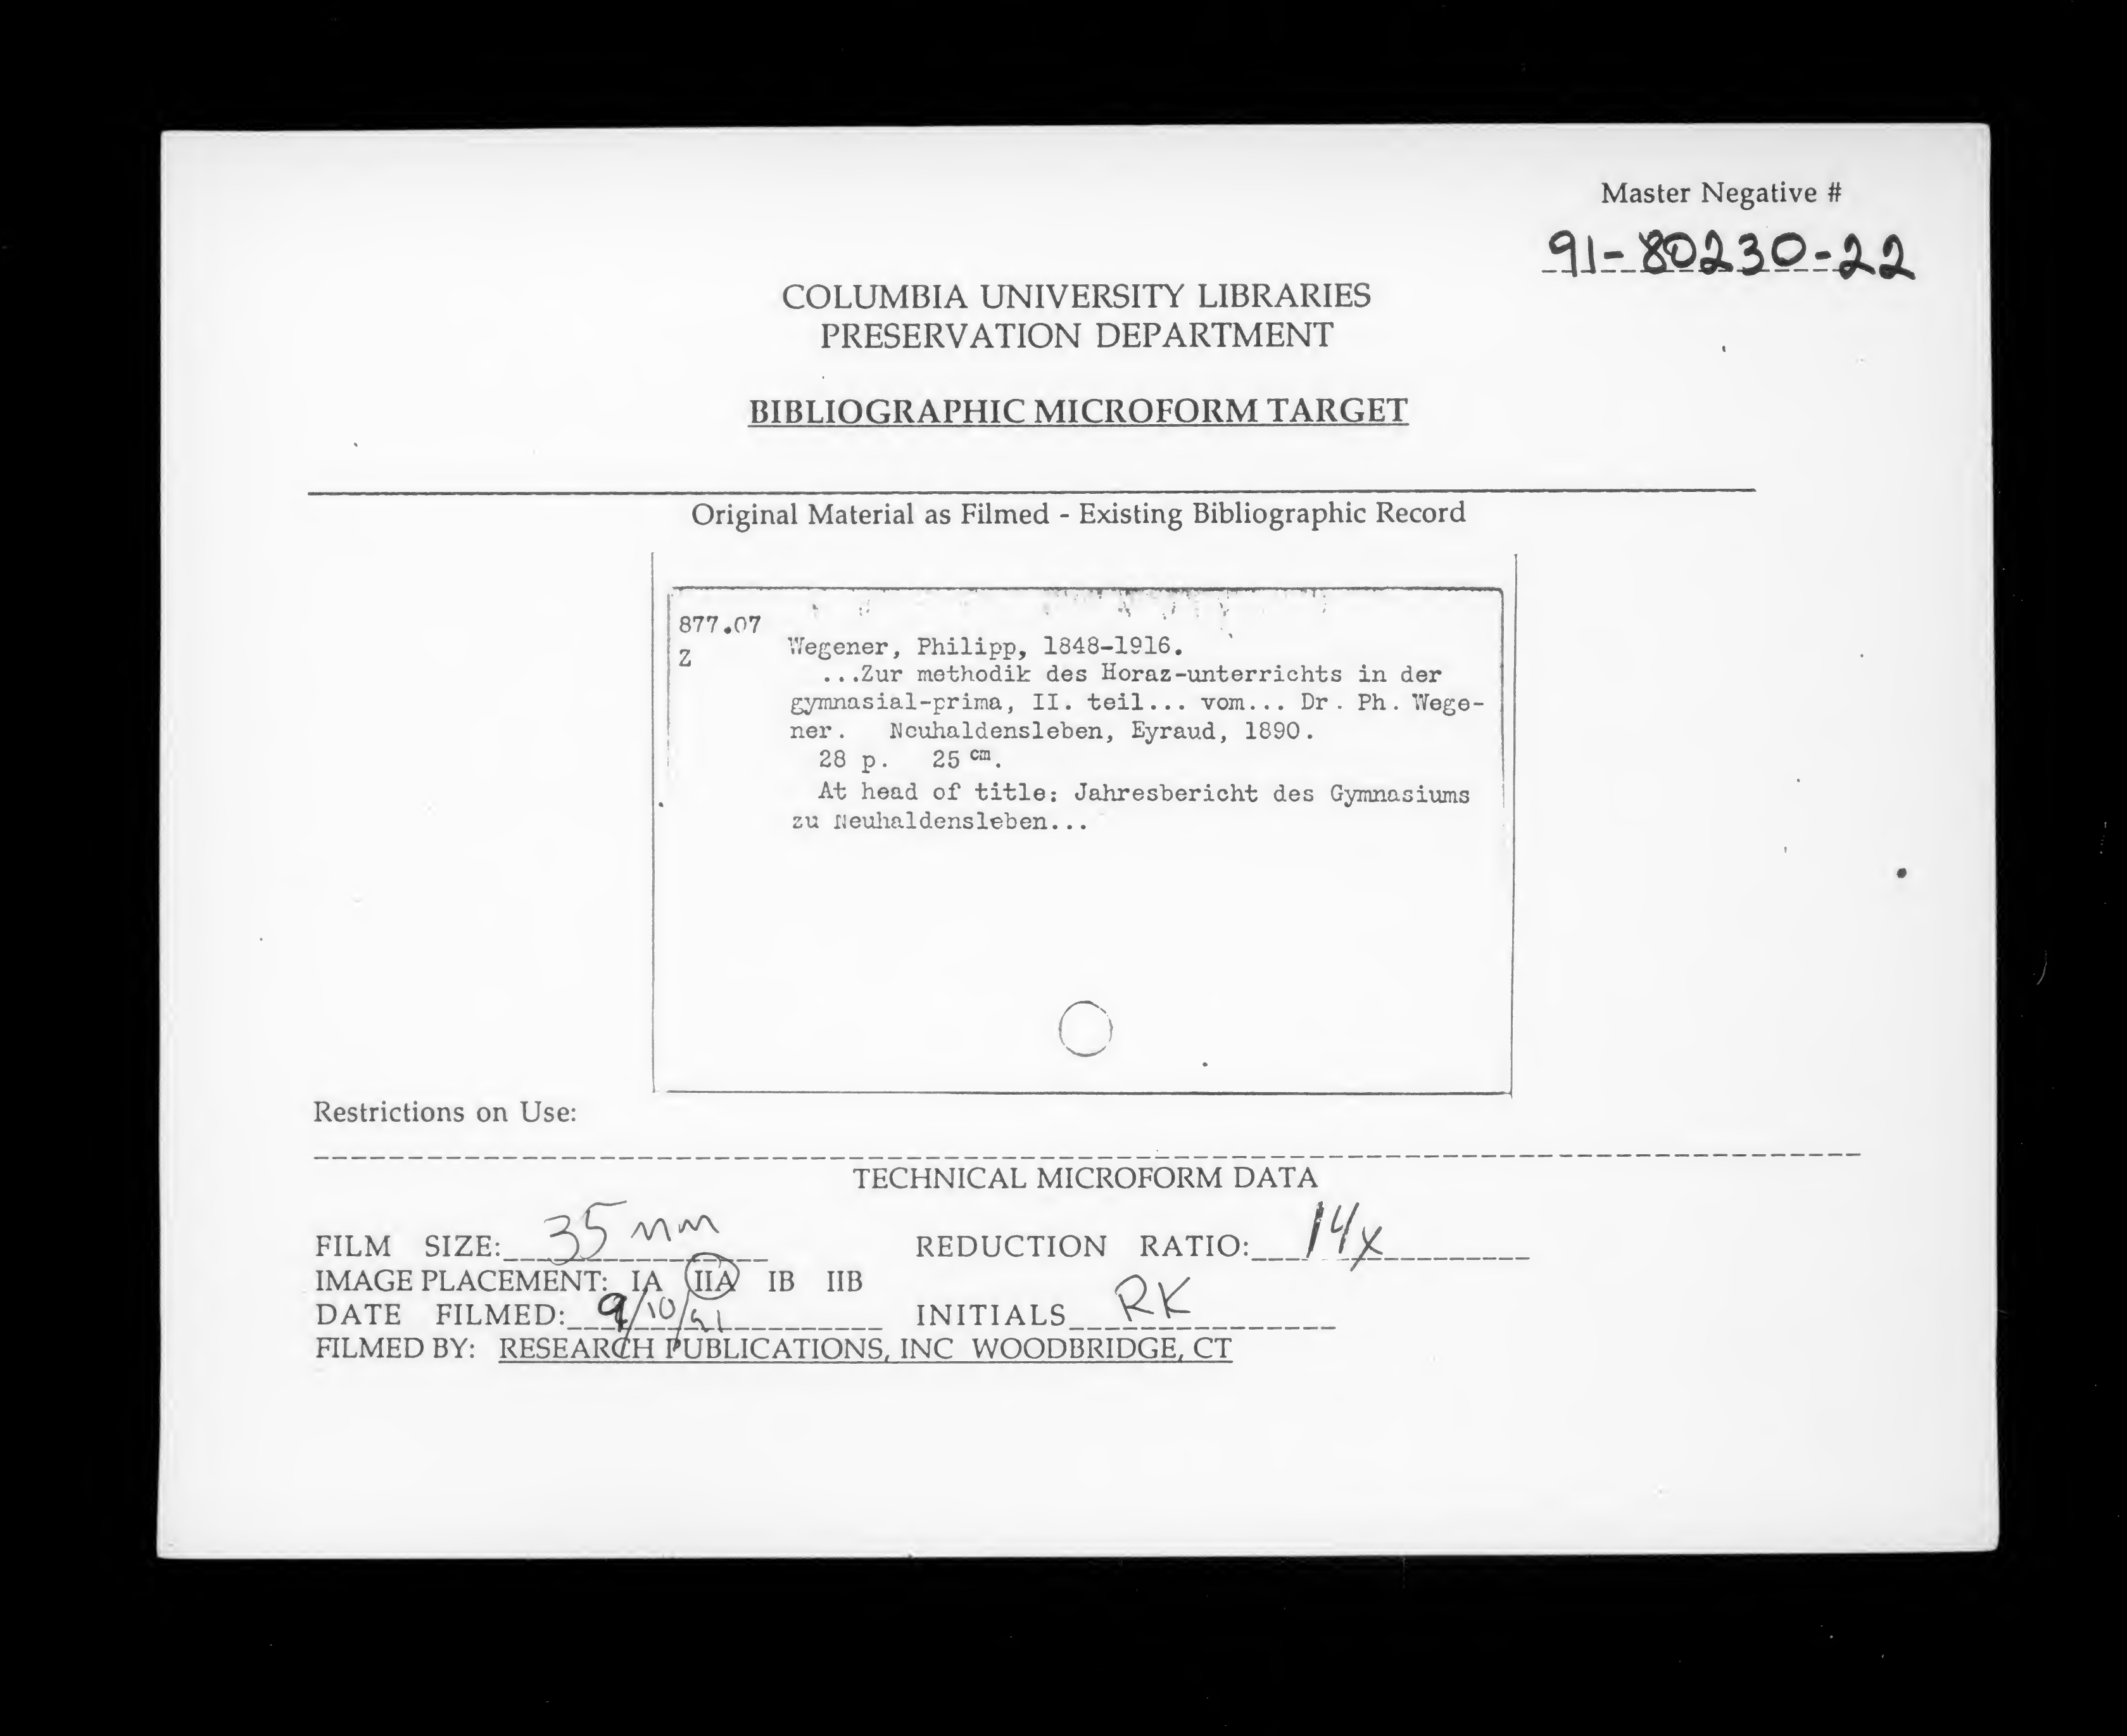 Master Negative #
91-80230-22
COLUMBIA UNIVERSITY LIBRARIES
PRESERVATION DEPARTMENT
BIBLIOGRAPHIC MICROFORM TARGET
Original Material as Filmed - Existing Bibliographic Record
877.07
Z
Wegener, Philipp, 1848-1916.
...Zur methodik des Horaz-unterrichts in der
gymnasial-prima, II. teil... vom... Dr. Ph. Wege-
ner. Neuhaldensleben, Eyraud, 1890.
28 p. 25 cm.
At head of title: Jahresbericht des Gymnasiums
zu Neuhaldensleben...
Restrictions on Use:
TECHNICAL MICROFORM DATA
FILM SIZE: 35 mm REDUCTION RATIO: 14x
IMAGE PLACEMENT: IA IIA IB IIB
DATE FILMED: 9/10/91 INITIALS RK
FILMED BY: RESEARCH PUBLICATIONS, INC WOODBRIDGE, CT